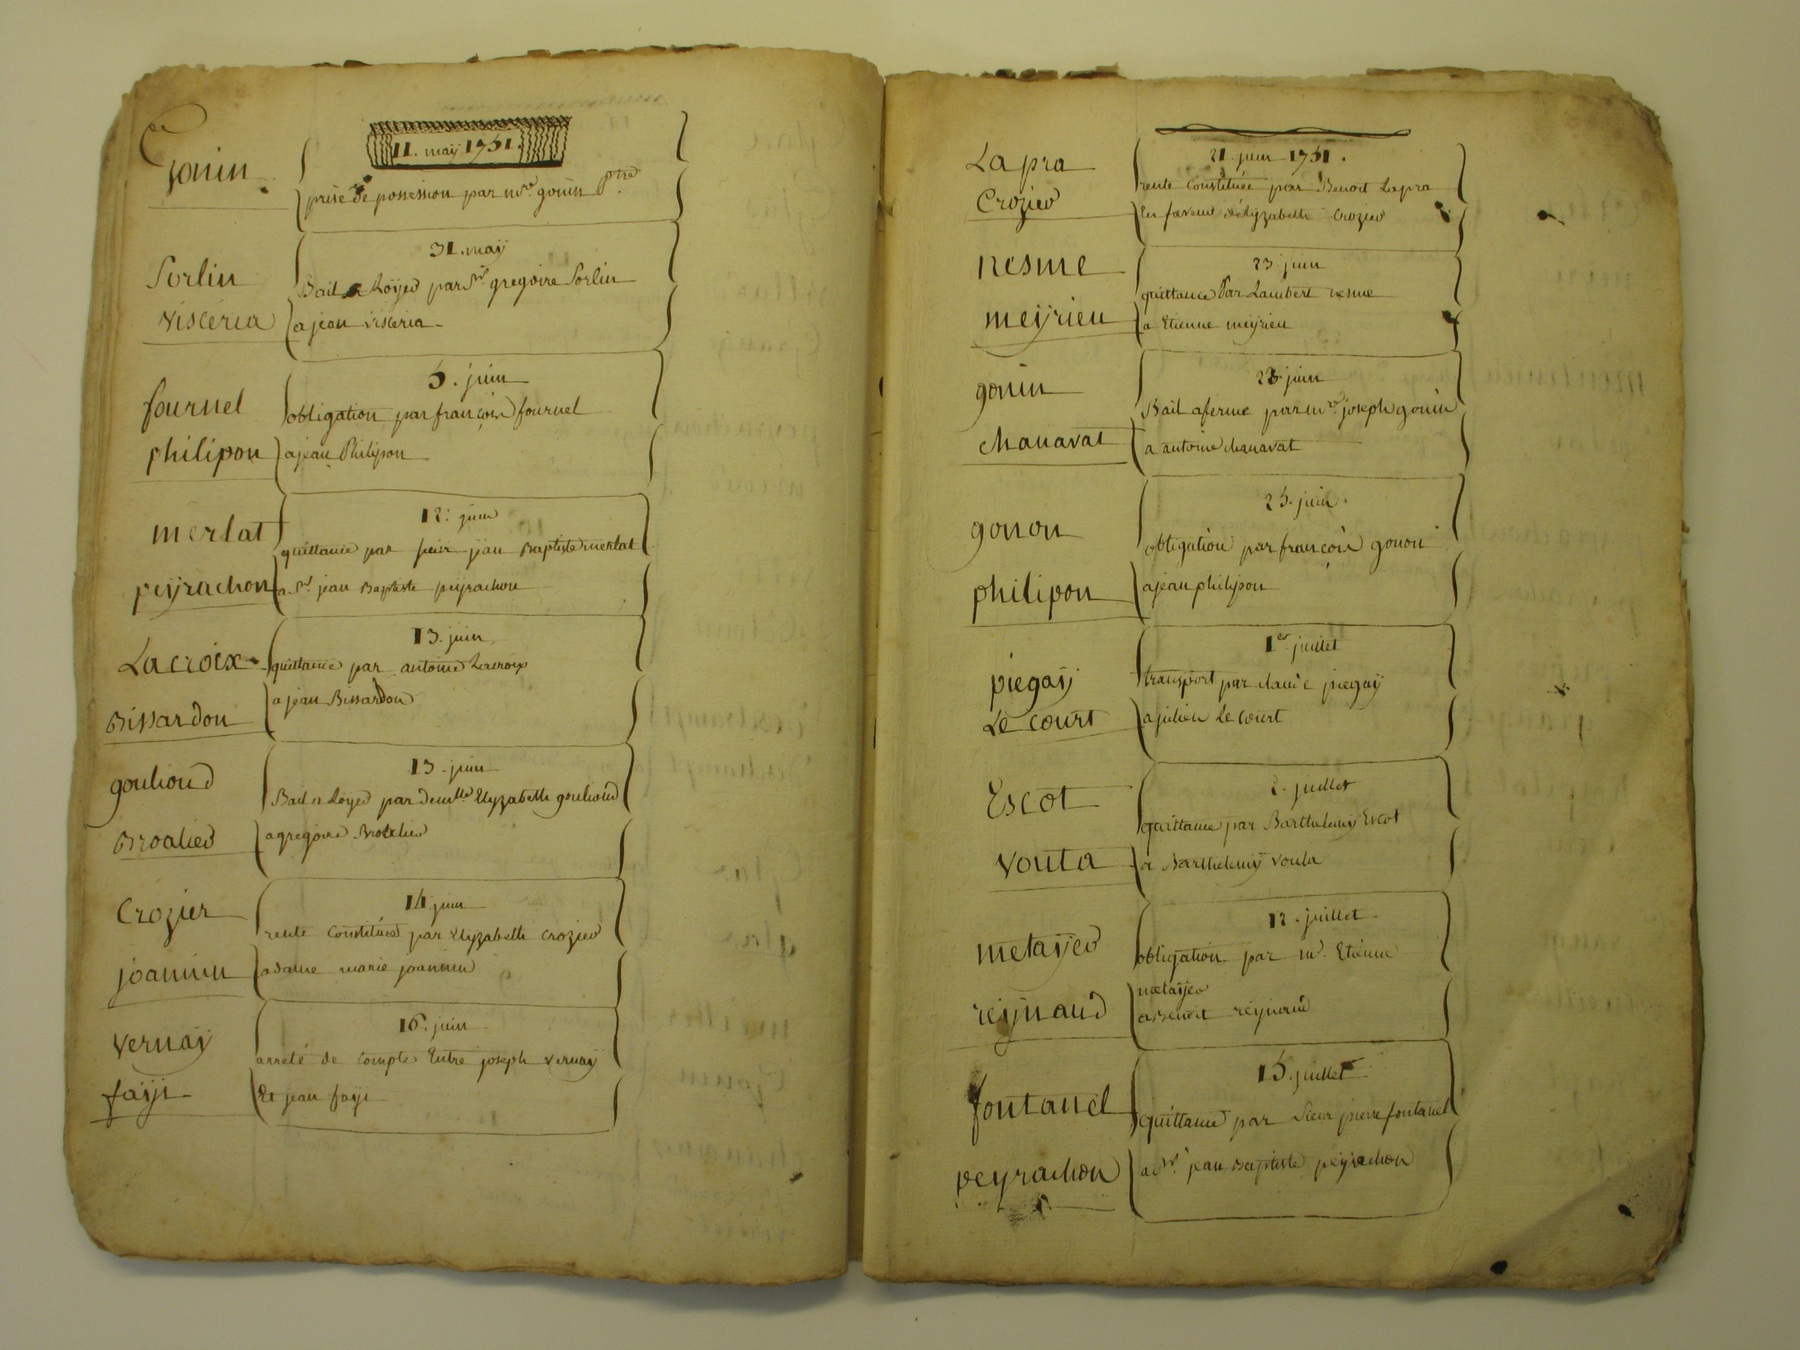 11. may 1751.
Gonin
prise de possession par mre gonin ptre
31. may
Sorlin
Bail a Loyer par Sr gregoire Sorlin
Visceria
a jean visceria
5. juin
fournel
obligation par françois fournel
philipon
a jean Philipon
12. juin
merlat
quittance par sieur jean Baptiste merlat
peyrachon
a Sr jean Baptiste peyrachon
13. juin
Lacroix
quittance par antoine Lacroix
Bissardon
a jean Bissardon
13. juin
gouliond
Bail a Loyer par demlle Elyzabeth gouliond
Broalier
a gregoire
14 juin
Crozier
rente Constituée par Elyzabeth Crozier
joannin
a dame marie joannin
16. juin
Vernay
arreté de compte Entre joseph Vernay
fayi
Et jean fayi
21. juin 1751.
Lapra
rente Constituée par Benoit Lapra
Crozier
En faveur d'élyzabeth Crozier
23. juin
nesme
quittance Par Lambert nesme
meyrieu
a Etienne meyrieu
23. juin
gonin
Bail aferme par mre joseph gonin
Chanavat
a antoine chanavat
25. juin.
gonon
obligation par françois gonon
philipon
a jean philipon
1er juillet
piegay
transport par claude piegay
Le Court
a julien Le Court
2. juillet
Escot
quittance par Barthelemy Escot
Vouta
a Barthelemy Vouta
12. juillet
metayer
obligation par mr. Etienne
metayer
reynaud
a Benoit reynaud
15. juillet
fontanel
quittance par Sieur pierre fontanel
peyrachon
a Sr. jean Baptiste peyrachon